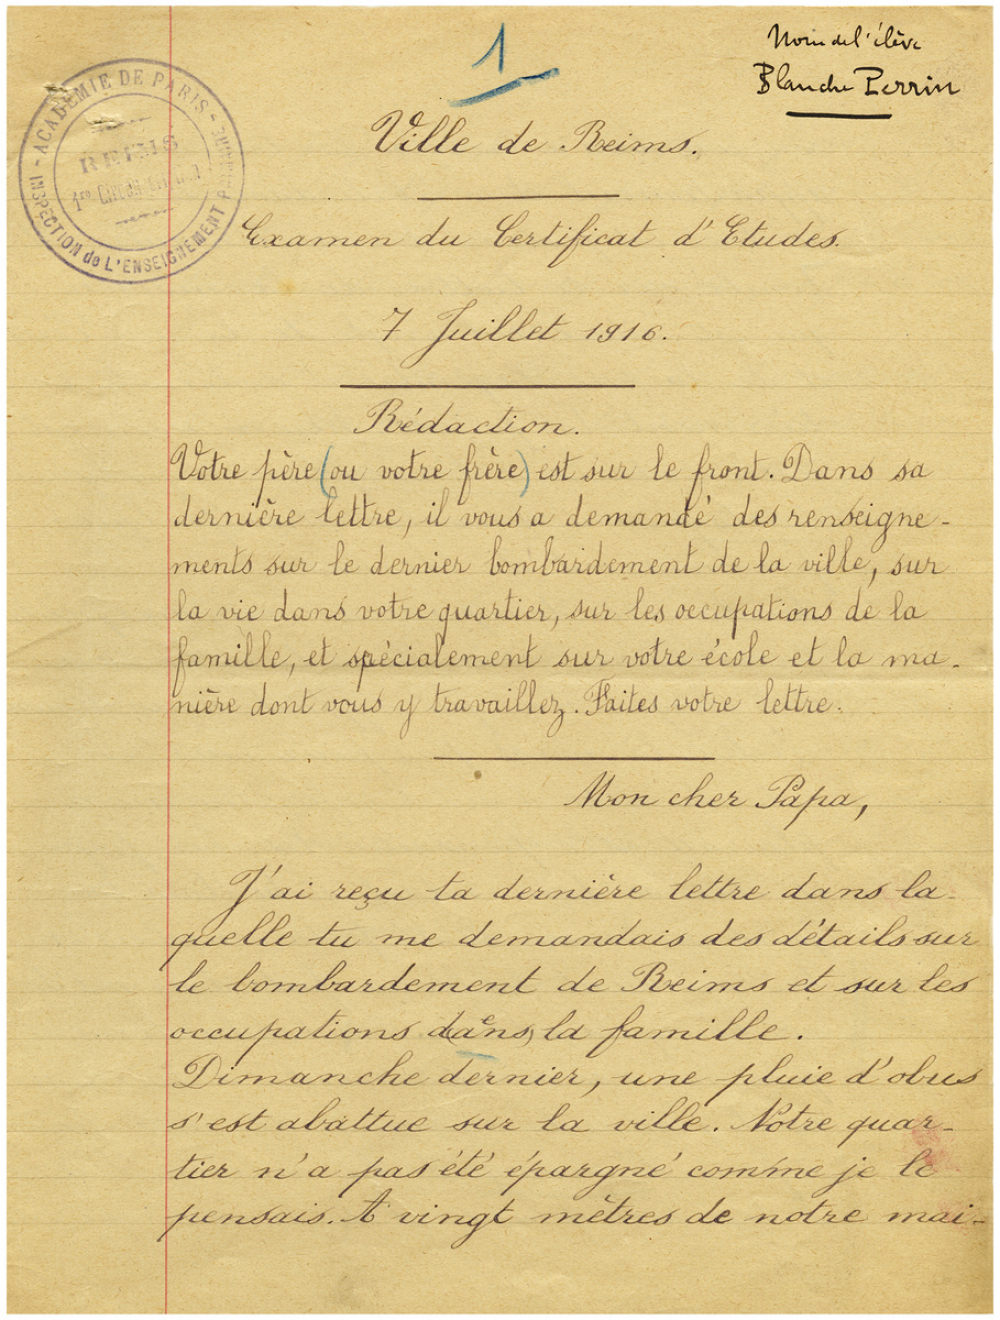 1
Nom de l'élève
Blanche Perrin
ACADÉMIE DE PARIS
INSPECTION de L'ENSEIGNEMENT
REIMS
Ville de Reims.
Examen du Certificat d'Etudes.
7 Juillet 1916.
Rédaction.
Votre père (ou votre frère) est sur le front. Dans sa
dernière lettre, il vous a demandé des renseigne-
ments sur le dernier bombardement de la ville, sur
la vie dans votre quartier, sur les occupations de la
famille, et spécialement sur votre école et la ma-
nière dont vous y travaillez. Faites votre lettre.
Mon cher Papa,
J'ai reçu ta dernière lettre dans la-
quelle tu me demandais des détails sur
le bombardement de Reims et sur les
occupations (dans) la famille.
Dimanche dernier, une pluie d'obus
s'est abattue sur la ville. Notre quar-
tier n'a pas été épargné comme je le
pensais. A vingt mètres de notre mai-